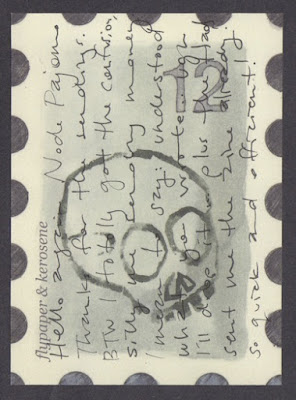 flypaper & kerosene
Hello again Node Pajomo
Thanks for the sendings.
BTW I totally got the confusion,
silly me sending money
I mean I say: understood
what you wrote upon
I'll do it Plus the lad
sent me the zine already.
So quick and efficient!
12